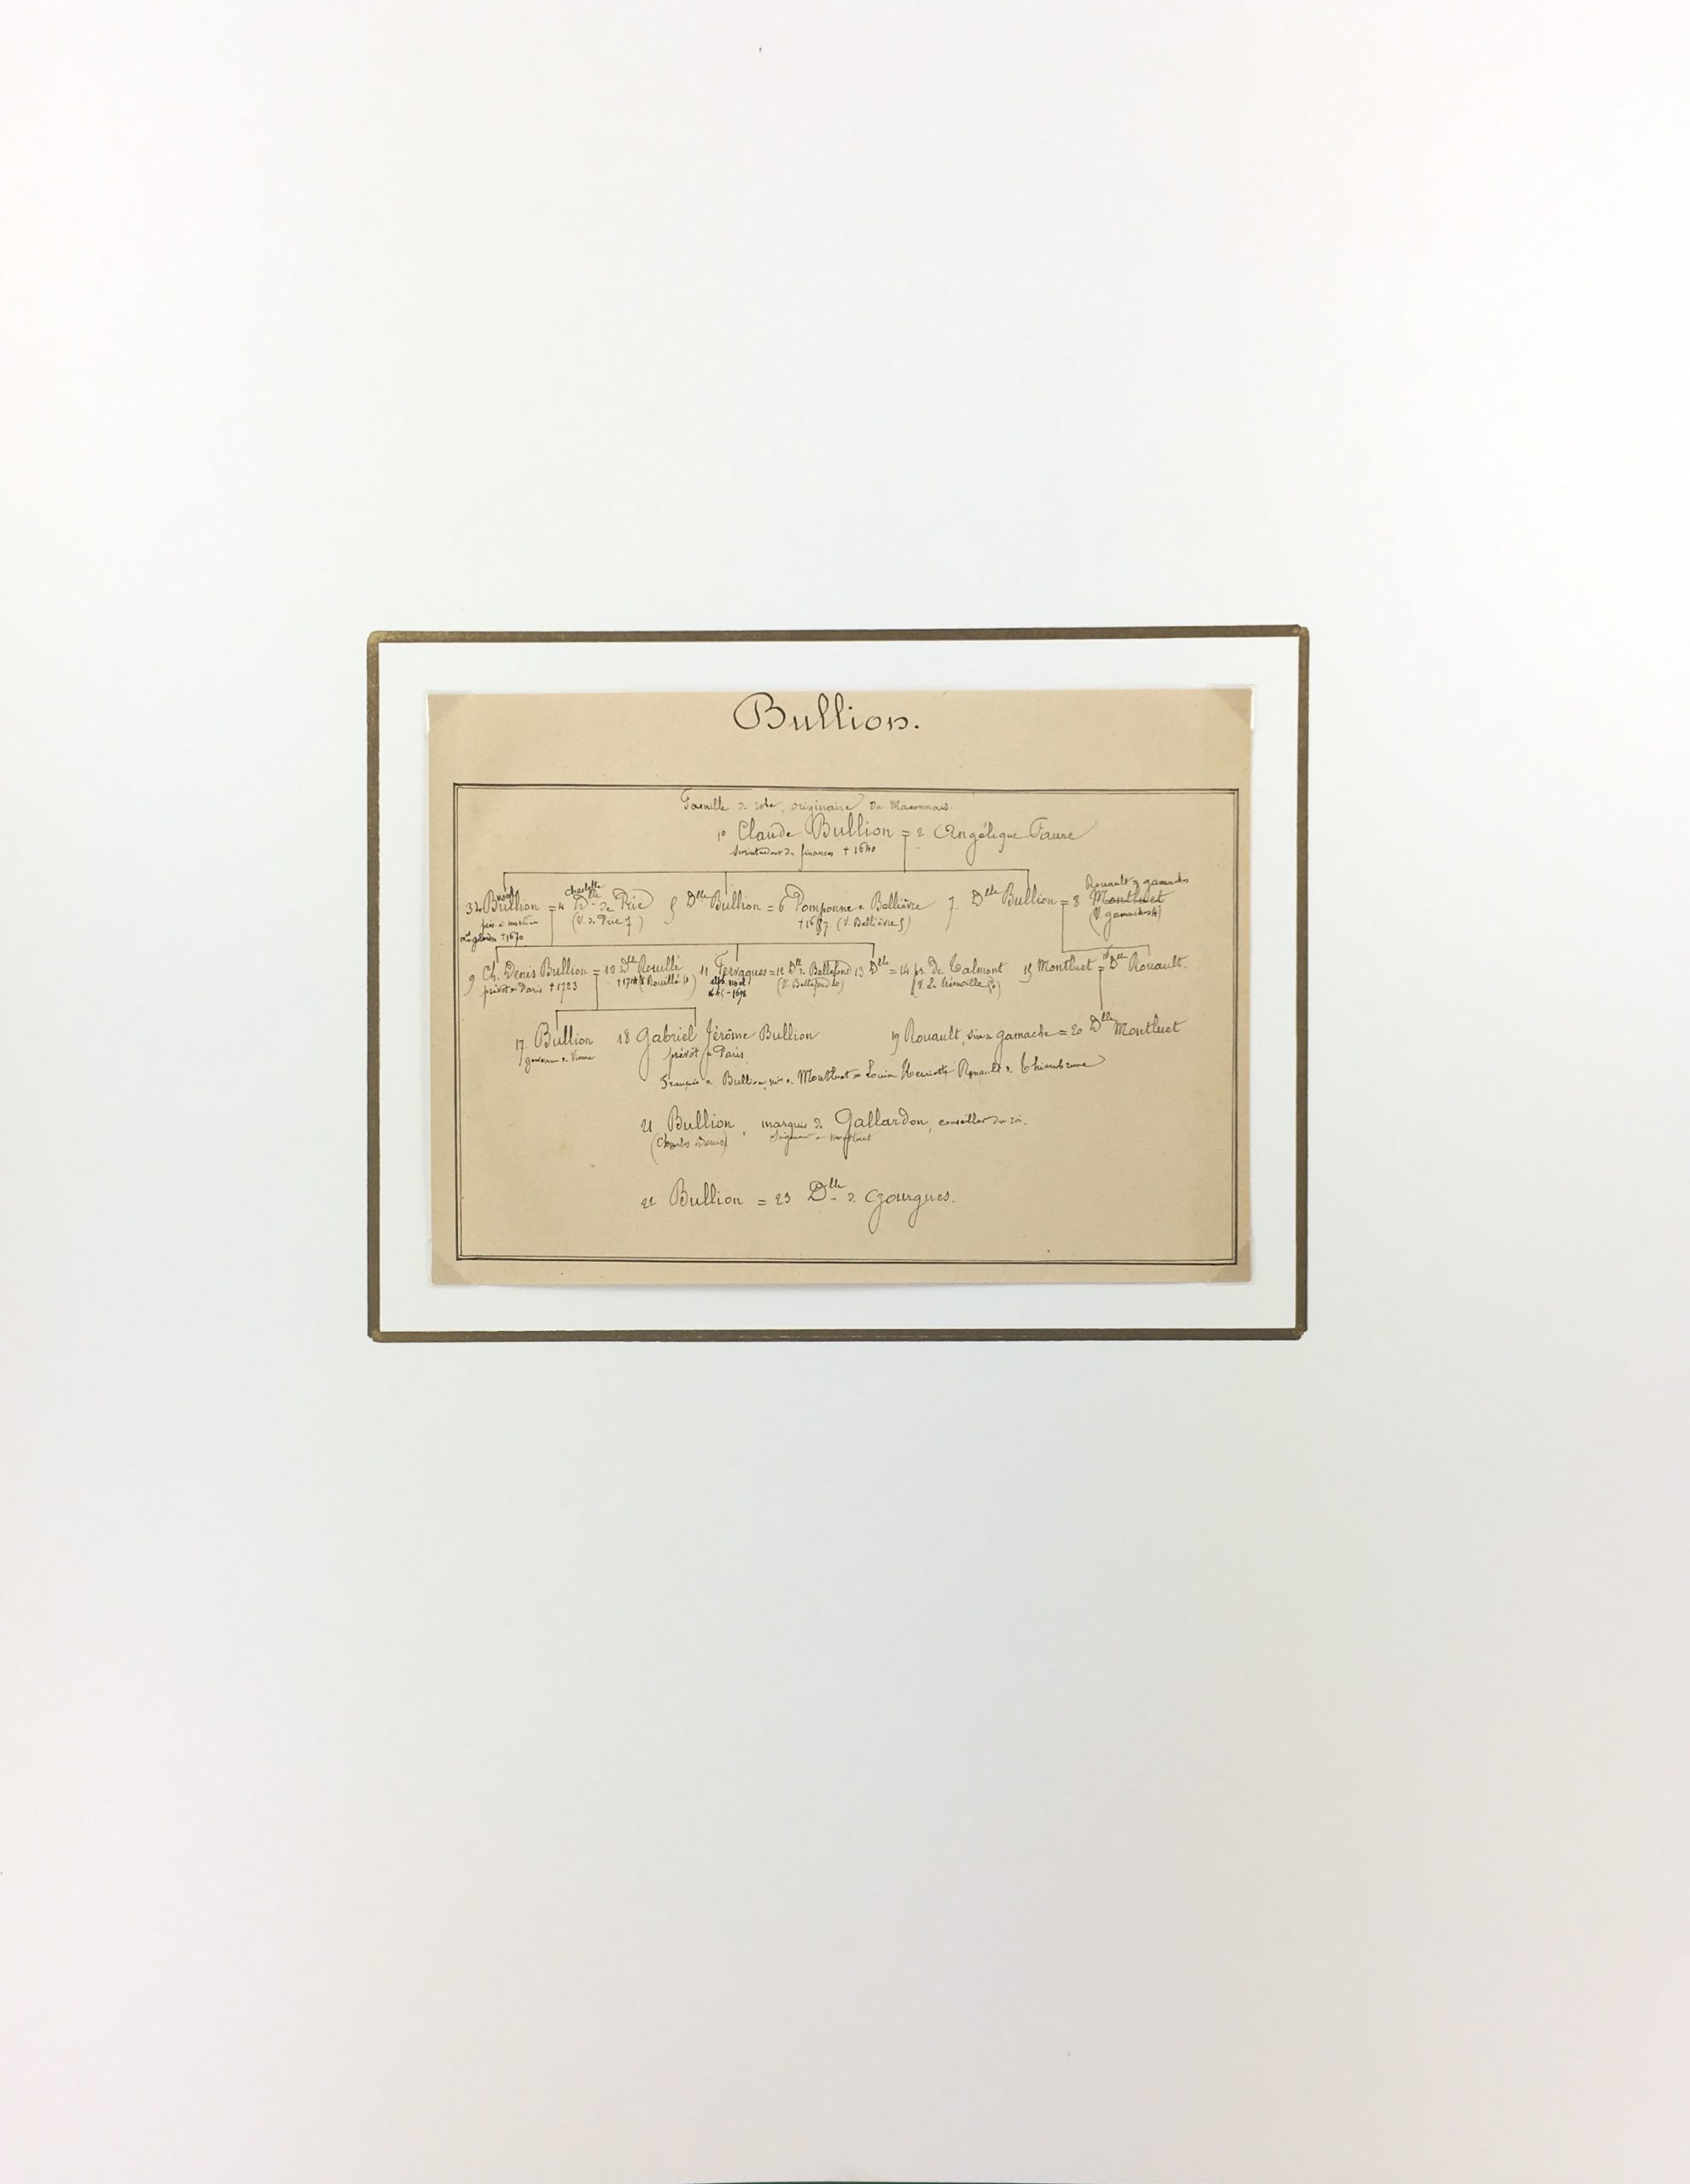 Bullion.
Famille de robe, originaire du Maconnais.
1° Claude Bullion = 2 Angélique Faure
Surintendant des finances † 1640
Charlotte
Rouault de gamaches
3 Bullion = 4 Dlle de Prie 5 Dlle Bullion = 6 Pomponne de Bellièvre 7 Dlle Bullion = 8 Montluet
(V. de Prie 7) † 1657 (V. Bellièvre 5) (V. gamaches 4)
† 1670
9 Ch. Denis Bullion = 10 Dlle Rouillé 11 Fervaques = 12 Dlle de Bellefond 13 Dlle = 14 pr. de Talmont 15 Montluet = Dlle Rouault.
prévôt de Paris † 1723 (V. Rouillé) (V. Bellefond) (V. La Trémoille)
17 Bullion 18 Gabriel Jérôme Bullion 19 Rouault, sire de gamache = 20 Dlle Montluet
prévôt de Paris
François de Bullion, sire de Montluet = Louise Henriette Rouault de Thiembrune
21 Bullion, marquis de Gallardon, conseiller du roi.
(Charles Denis) Seigneur de Montluet
22 Bullion = 23 Dlle de Gourgues.